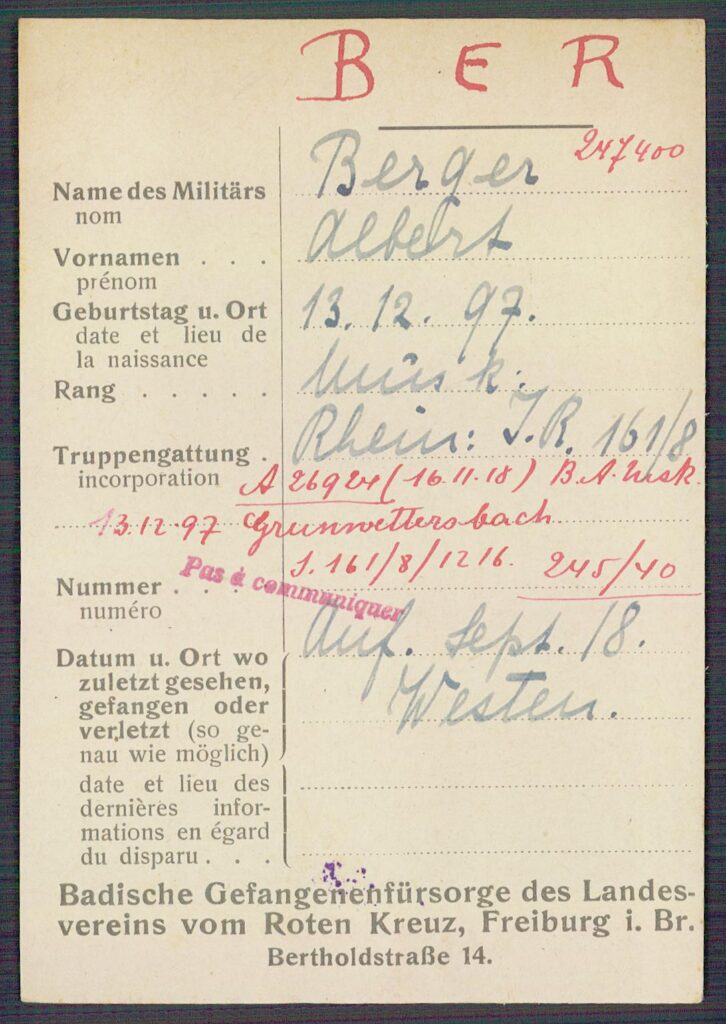 B E R
247400
Name des Militärs Berger
nom
Vornamen . . . Albert
prénom
Geburtstag u. Ort 13. 12. 97.
date et lieu de
la naissance
Rang . . . . . Musk.
Truppengattung . Rhein: J.R. 161/8
incorporation A 26924 (16.11.18) B.A. Msk.
13.12.97 Grunwettersbach
J. 161/8/1216. 245/40
Pas à communiquer
Nummer . . .
numéro
Datum u. Ort wo Anf. Sept. 18.
zuletzt gesehen, Westen.
gefangen oder
verletzt (so ge-
nau wie möglich)
date et lieu des
dernières infor-
mations en égard
du disparu . . .
Badische Gefangenenfürsorge des Landes-
vereins vom Roten Kreuz, Freiburg i. Br.
Bertholdstraße 14.